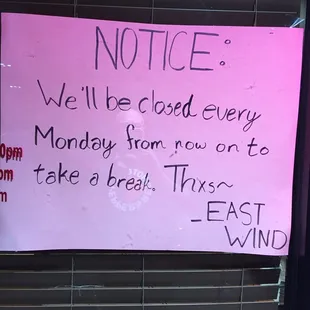 NOTICE:
We'll be closed every
Monday from now on to
0pm
take a break. Thxs~
pm
m
_EAST
WIND